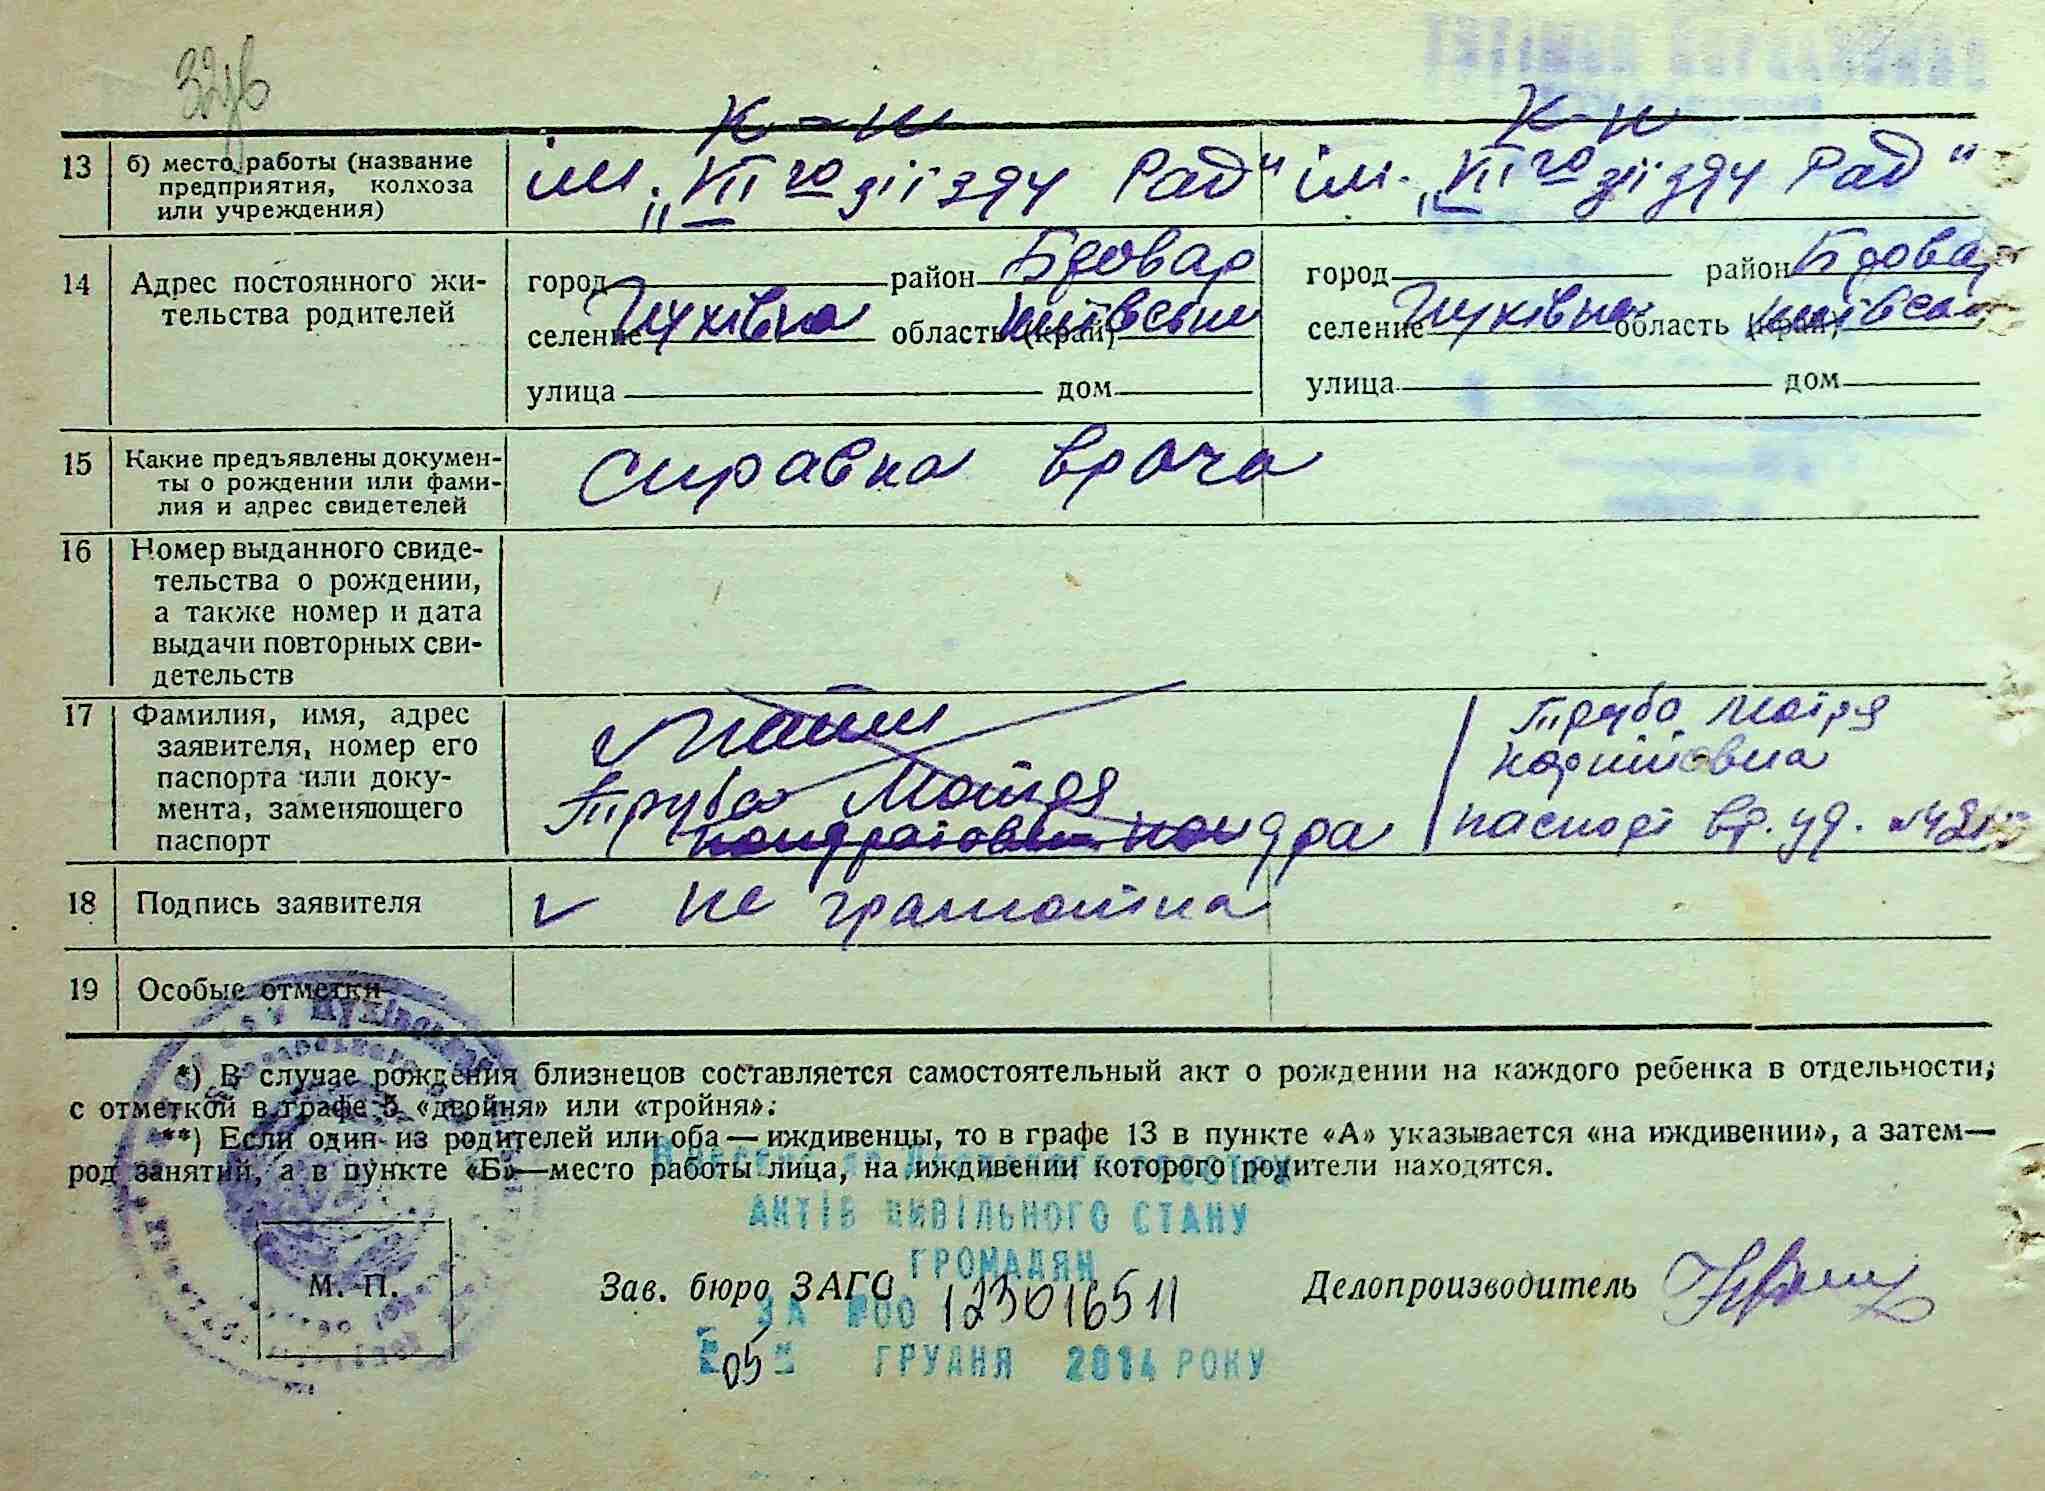 32
К-п К-п
13 б) место работы (название предприятия, колхоза или учреждения) ім. „VIIго зїїзду Рад" ім. „VIIго зїїзду Рад"
14 Адрес постоянного жительства родителей
город район Бровар город район Бровар
селение Пухівка область (край) Київська селение Пухівка область (край) Київська
улица дом улица дом
15 Какие предъявлены документы о рождении или фамилия и адрес свидетелей справка врача
16 Номер выданного свидетельства о рождении, а также номер и дата выдачи повторных свидетельств
17 Фамилия, имя, адрес заявителя, номер его паспорта или документа, заменяющего паспорт
Мати
Труба Мотря
Труба Мотря
паспорт вр. уд.
18 Подпись заявителя не грамотна
19 Особые отметки
*) В случае рождения близнецов составляется самостоятельный акт о рождении на каждого ребенка в отдельности,
с отметкой в графе 5 «двойня» или «тройня».
**) Если один из родителей или оба — иждивенцы, то в графе 13 в пункте «А» указывается «на иждивении», а затем—
род занятий, а в пункте «Б»—место работы лица, на иждивении которого родители находятся.
АКТІВ ЦИВІЛЬНОГО СТАНУ
ГРОМАДЯН
М. П. Зав. бюро ЗАГС Делопроизводитель
ЗА №00 123016511
05 ГРУДНЯ 2014 РОКУ